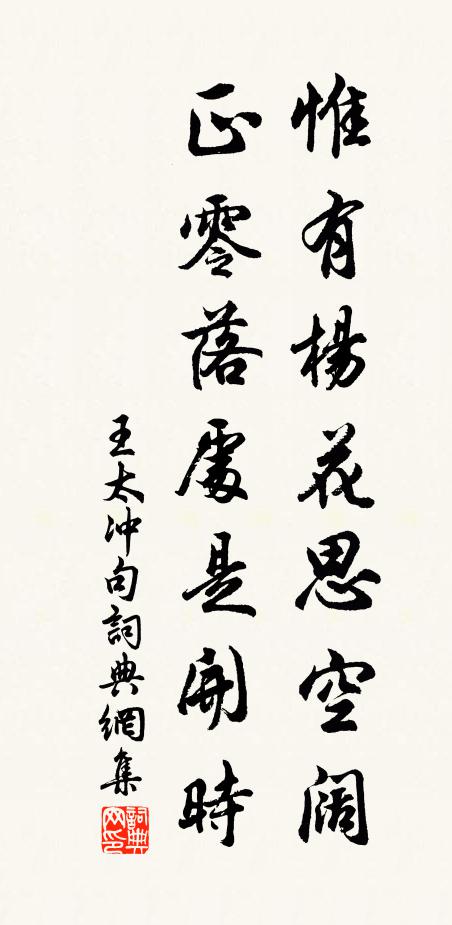 惟有楊花思空阔
正零落處是開時
王太冲句詞典網集
詞典網印